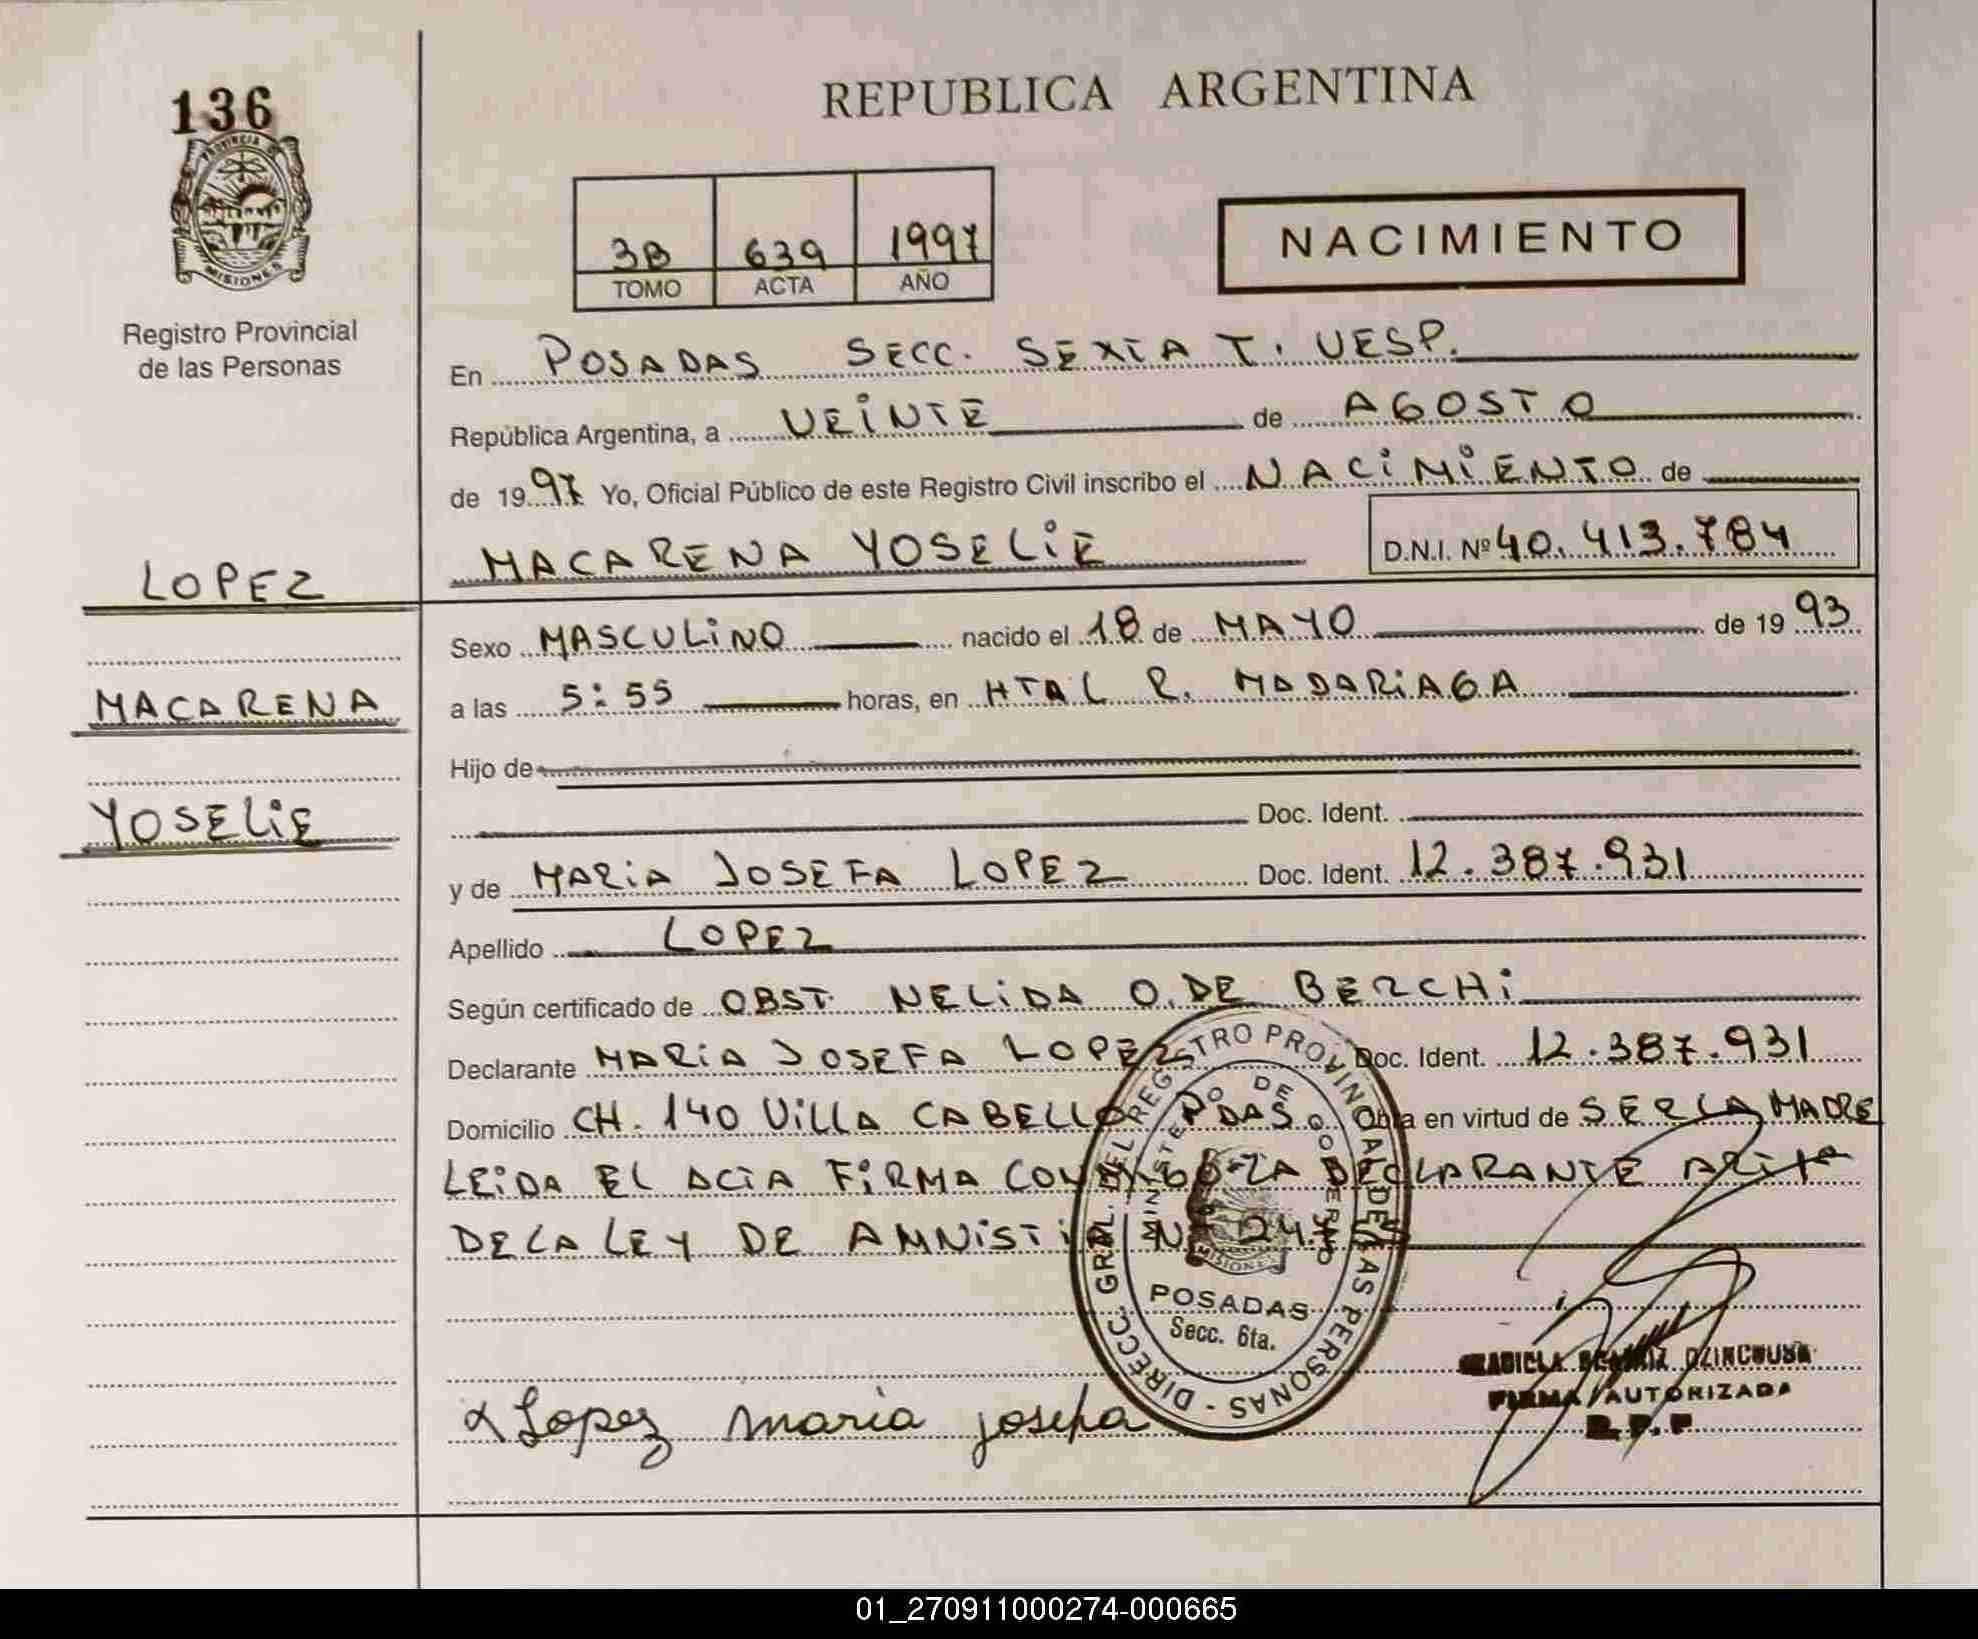 136
PROVINCIA DE
MISIONES
Registro Provincial
de las Personas
LOPEZ
MACARENA
YOSELIE
REPUBLICA ARGENTINA
3B 639 1997
TOMO ACTA AÑO
NACIMIENTO
En POSADAS SECC. SEXTA T. VESP.
República Argentina, a VEINTE de AGOSTO
de 1997 Yo, Oficial Público de este Registro Civil inscribo el NACIMIENTO de
MACARENA YOSELIE D.N.I. Nº 40.413.784
Sexo MASCULINO nacido el 18 de MAYO de 1993
a las 5:55 horas, en HTAL R. MADARIAGA
Hijo de
Doc. Ident.
y de MARIA JOSEFA LOPEZ Doc. Ident. 12.387.931
Apellido LOPEZ
Según certificado de OBST. NELIDA O. DE BERCHI
Declarante MARIA JOSEFA LOPEZ Doc. Ident. 12.387.931
Domicilio CH. 140 VILLA CABELLO PDAS. Obra en virtud de SER LA MADRE
LEIDA EL ACTA FIRMA CONMIGO LA DECLARANTE
DE LA LEY DE AMNISTIA Nº
DIRECC. GRAL. DEL REGISTRO PROVINCIAL DE LAS PERSONAS -
MINISTERIO DE GOBIERNO
MISIONES
POSADAS
Secc. 6ta.
Lopez maria josefa
FIRMA AUTORIZADA
R.P.P
01_270911000274-000665